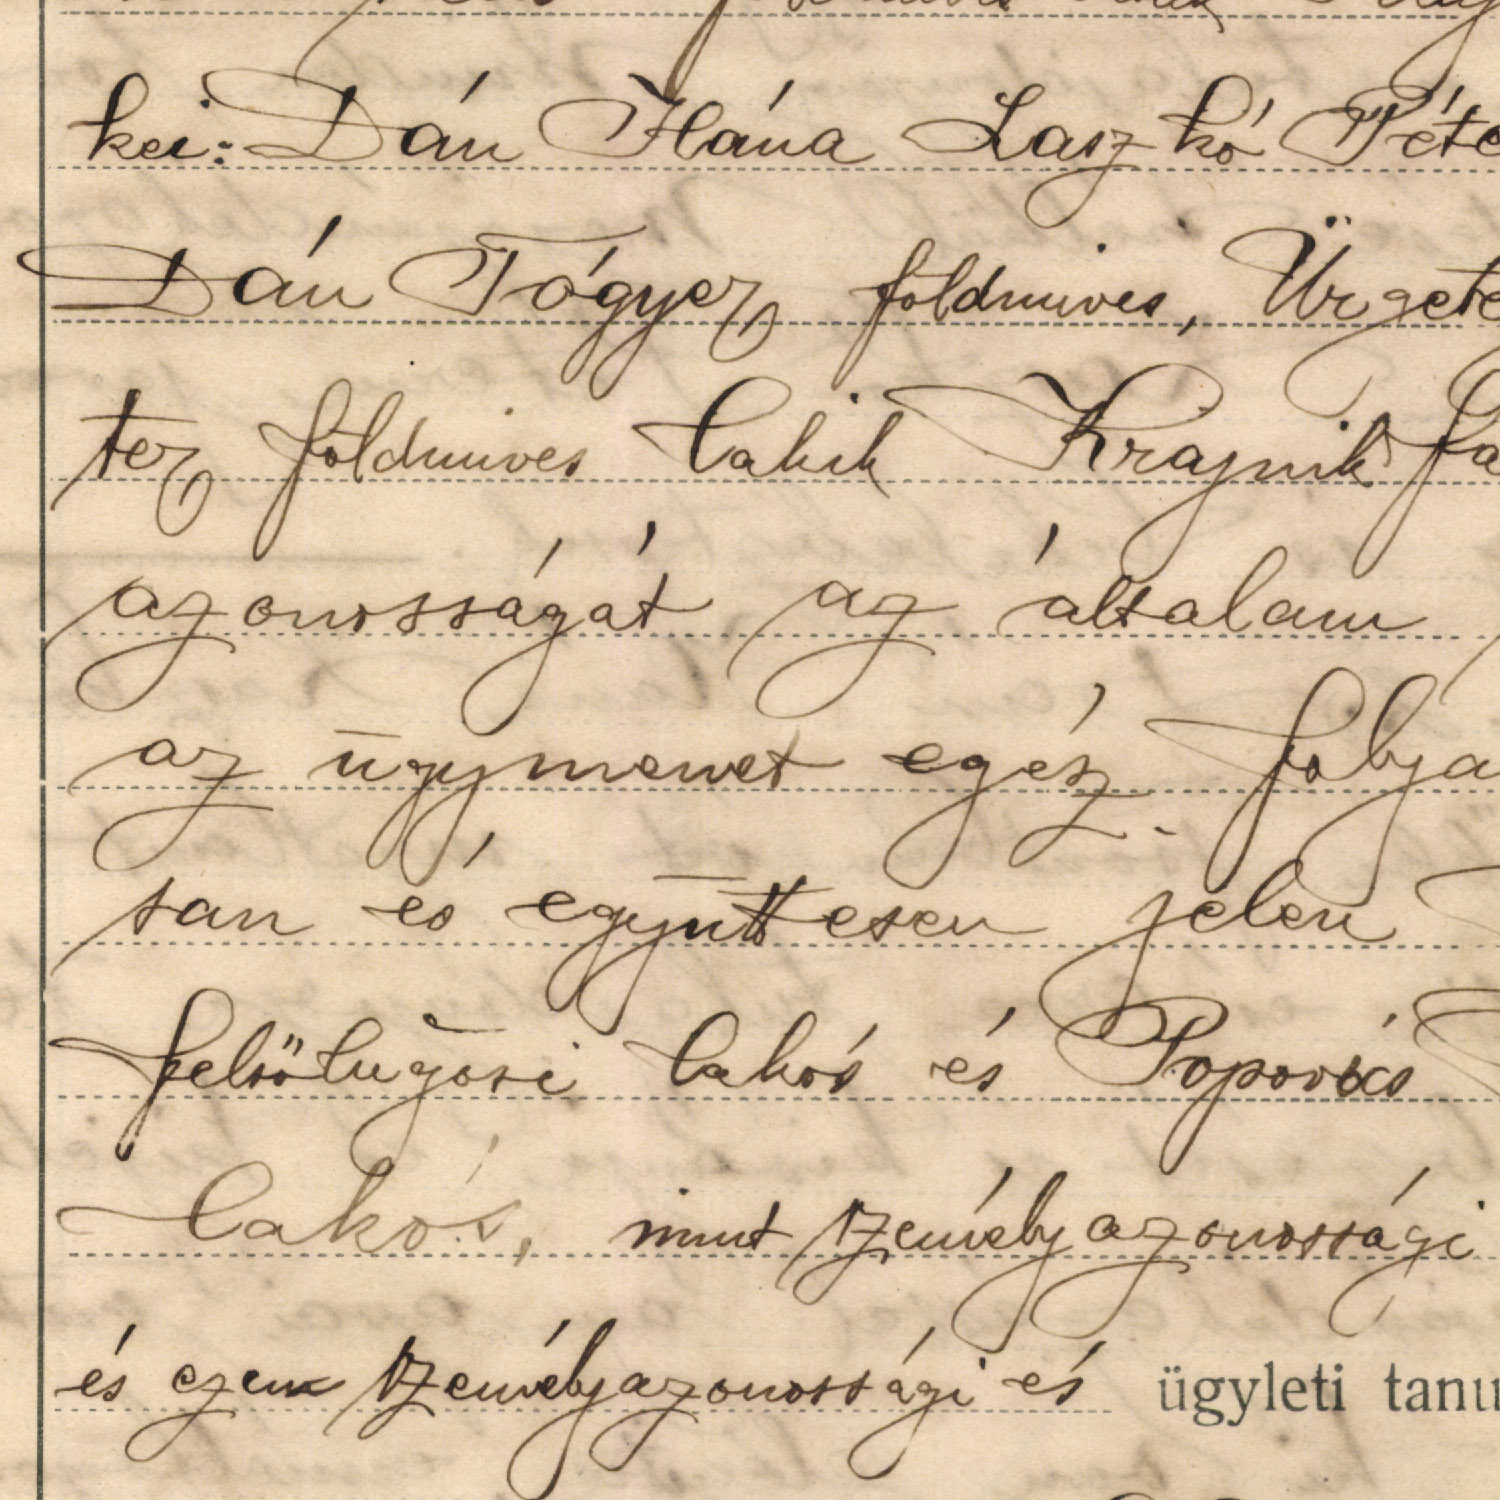 kei: Dán Ilána Laszkó Péte
Dán Tógyer földmives, Ürgete
ter földmives lakik Krajnik fa
azonosságát az általam
az ügymenet egész folya
san és együttesen jelen
felsőlugosi lakós és Popovics
lakós, mint személyazonossági
és ezen személyazonossági és ügyleti tanu